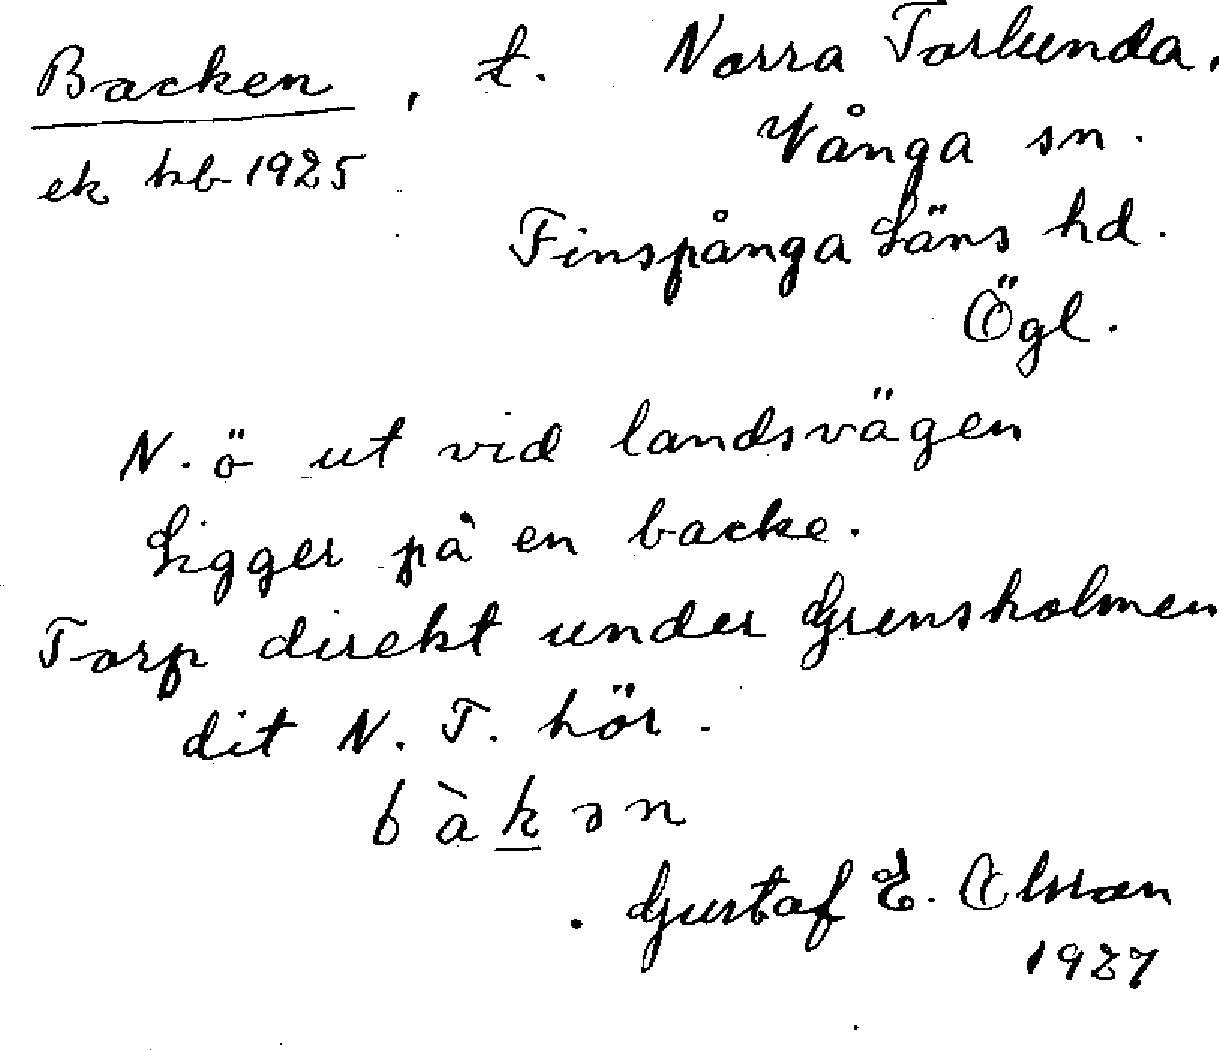 Backen, t. Norra Torlunda,
Vånga sn.
ek hb 1925
Finspånga Läns hd.
Ögl.
N. ö ut vid landsvägen
Ligger på en backe.
Torp direkt under Grensholmen
dit N. T. hör.
bàkən
Gustaf E. Olsson
1927